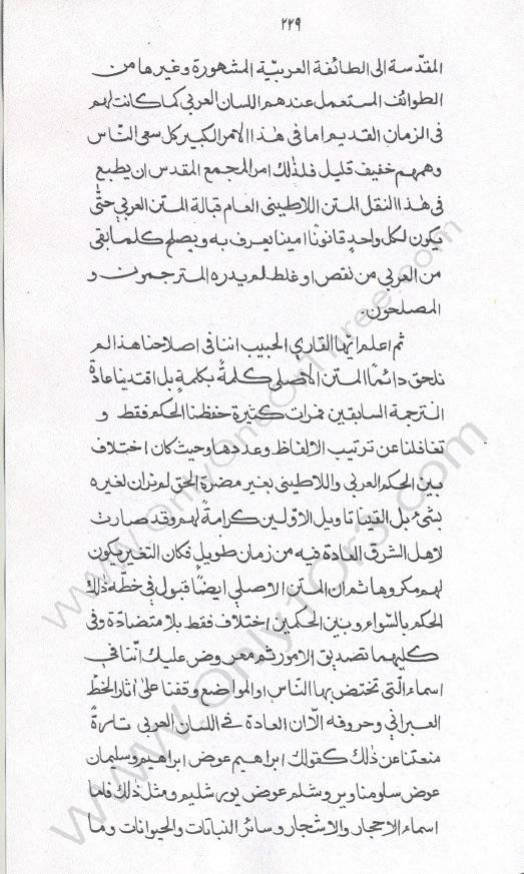 ٢٢٩
المقدّسة الى الطائفة العربيّة المشهورة وغيرها من
الطوائف المستعمل عندهم اللسان العربي كما كانت لهم
فى الزمان القديم اما فى هذا الامر الكبير كل سعى النّاس
وهمهم خفيف قليل فلذلك امر المجمع المقدس ان يطبع
فى هذا النقل المتن اللاطينى العام قبالة المتن العربي حتّى
يكون لكل واحدٍ قانونًا امينا يعرف به ويصلح كلما بقى
من العربي من نقص او غلط لم يدره المترجمون و
المصلحون.
ثم اعلم ايّها القاري الحبيب اننا فى اصلاحنا هذا لم
نلحق دائمًا المتن الأصلى كلمةً بكلمةٍ بل اقتدينا عادة
الترجمة السابقين فمرات كثيرة حفظنا الحكم فقط و
تغافلنا عن ترتيب الالفاظ وعددها وحيث كان اختلاف
بين الحكم العربي واللاطينى بغير مضرة الحق لم نران لغيره
بشئ بل القينا تاويل الاوّلين كرامةً لهم وقد صارت
لاهل الشرق العادة فيه من زمان طويلٍ فكان التغير يكون
لهم مكروها ثم ان المتن الاصلي ايضًا قبول في خطّه ذلك
الحكم بالسّواء وبين الحكمين اختلاف فقط بلا متضادّة وفى
كليهما تصديق الامور ثم معروض عليك انّنا في
اسماء الّتى تختص بها النّاس او المواضع وقفنا على اثار الخطّ
العبرانى وحروفه الّا ان العادة فى اللسان العربى تارةً
منعتنا عن ذلك كقولك ابراهيم عوض ابراهيم وسليمان
عوض سلومنا ويروشلم عوض يورشليم ومثل ذلك فاما
اسماء الاحجار والاشجار وسائر النباتات والحيوانات وما
www.OnlyOneOrThree.com
www.Only1Or3.com